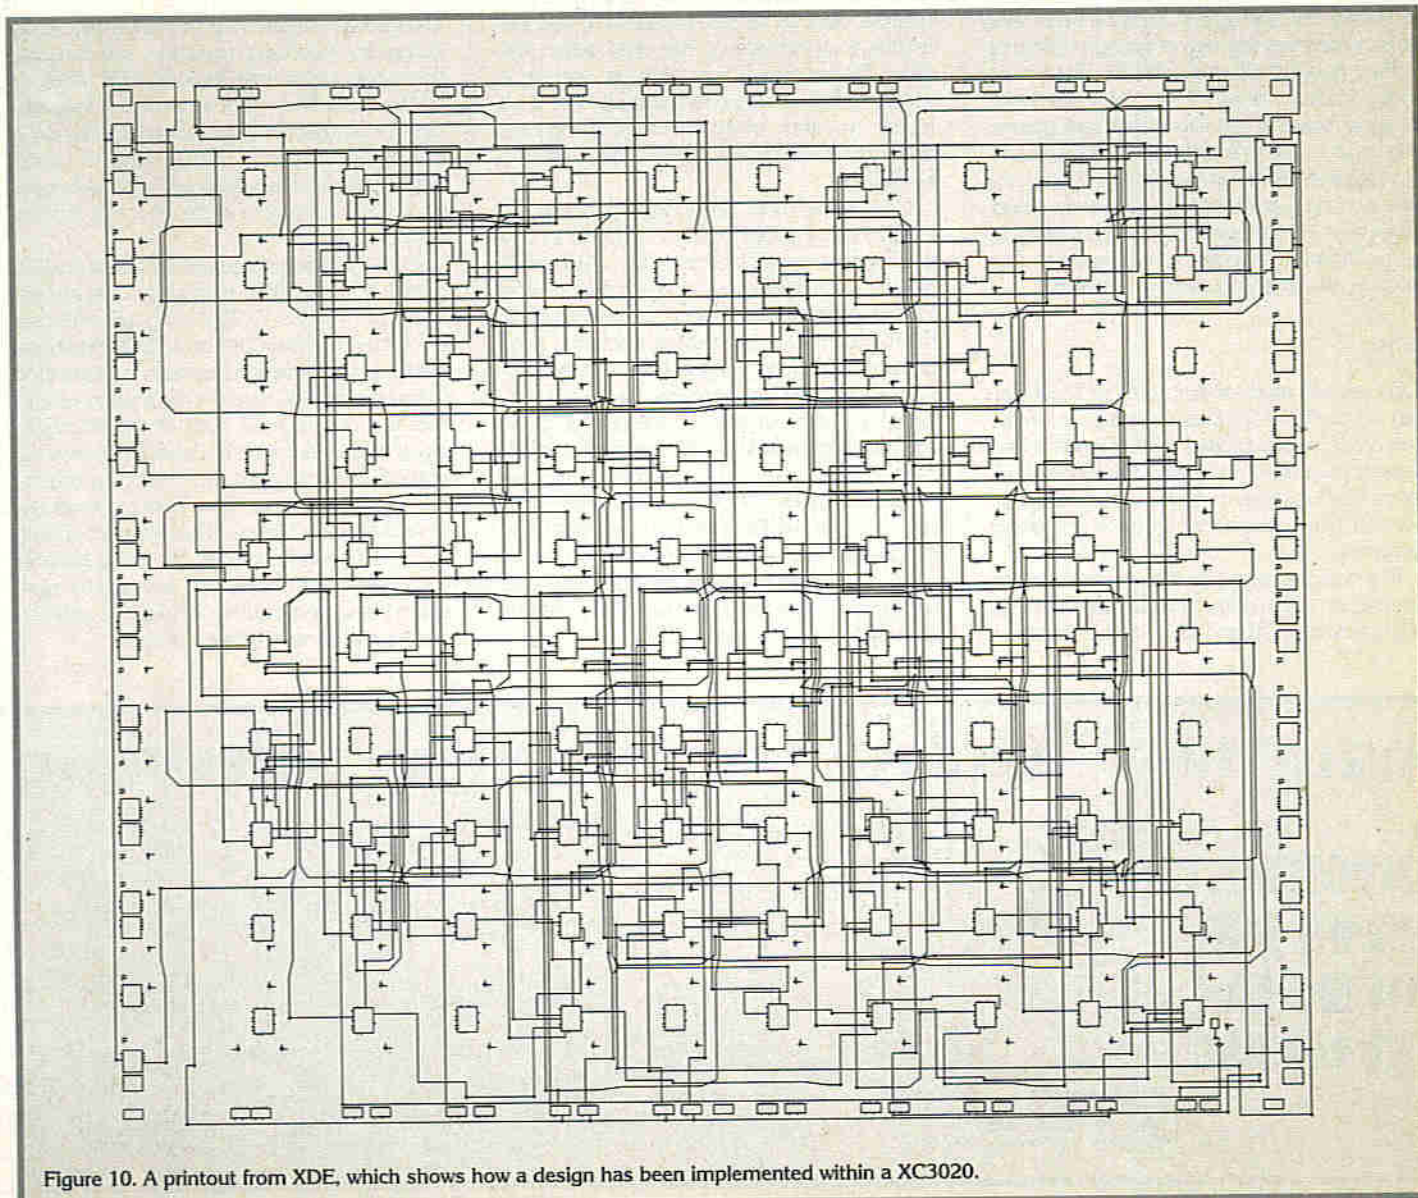 Figure 10. A printout from XDE, which shows how a design has been implemented within a XC3020.